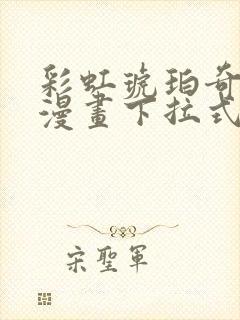 彩虹琥珀奇
漫畫下拉式
宋聖軍